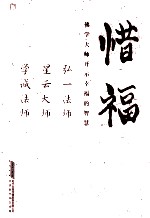 惜福
佛学大师开示幸福的智慧
弘一法师
星云大师
学诚法师